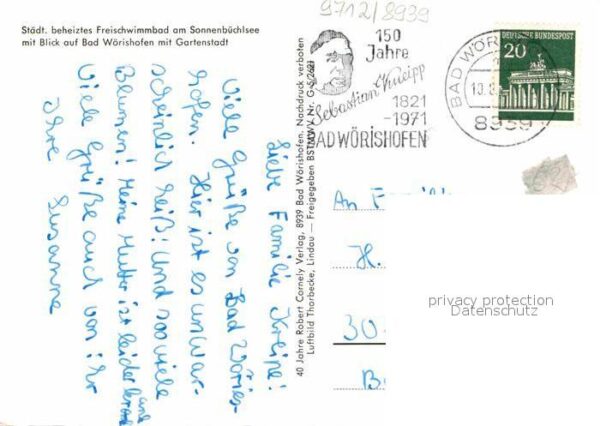 Städt. beheiztes Freischwimmbad am Sonnenbüchlsee
mit Blick auf Bad Wörishofen mit Gartenstadt
9712/8939
150
Jahre
Sebastian Kneipp
1821
-1971
BAD WÖRISHOFEN
BAD WÖR
8939
DEUTSCHE BUNDESPOST
20
Liebe Familie
Viele Grüße von Bad Wöries-
hofen. Hier ist es unwar-
scheinlich heiß! und soo viele
Blumen! Meine Mutter ist leider krank
und
Viele Grüße auch von ihr
Ihre Susanne
40 Jahre Robert Cornely Verlag, 8939 Bad Wörishofen. Nachdruck verboten
Luftbild Thorbecke, Lindau — Freigegeben BSTMWV Nr. G
An
H.
30
privacy protection
Datenschutz